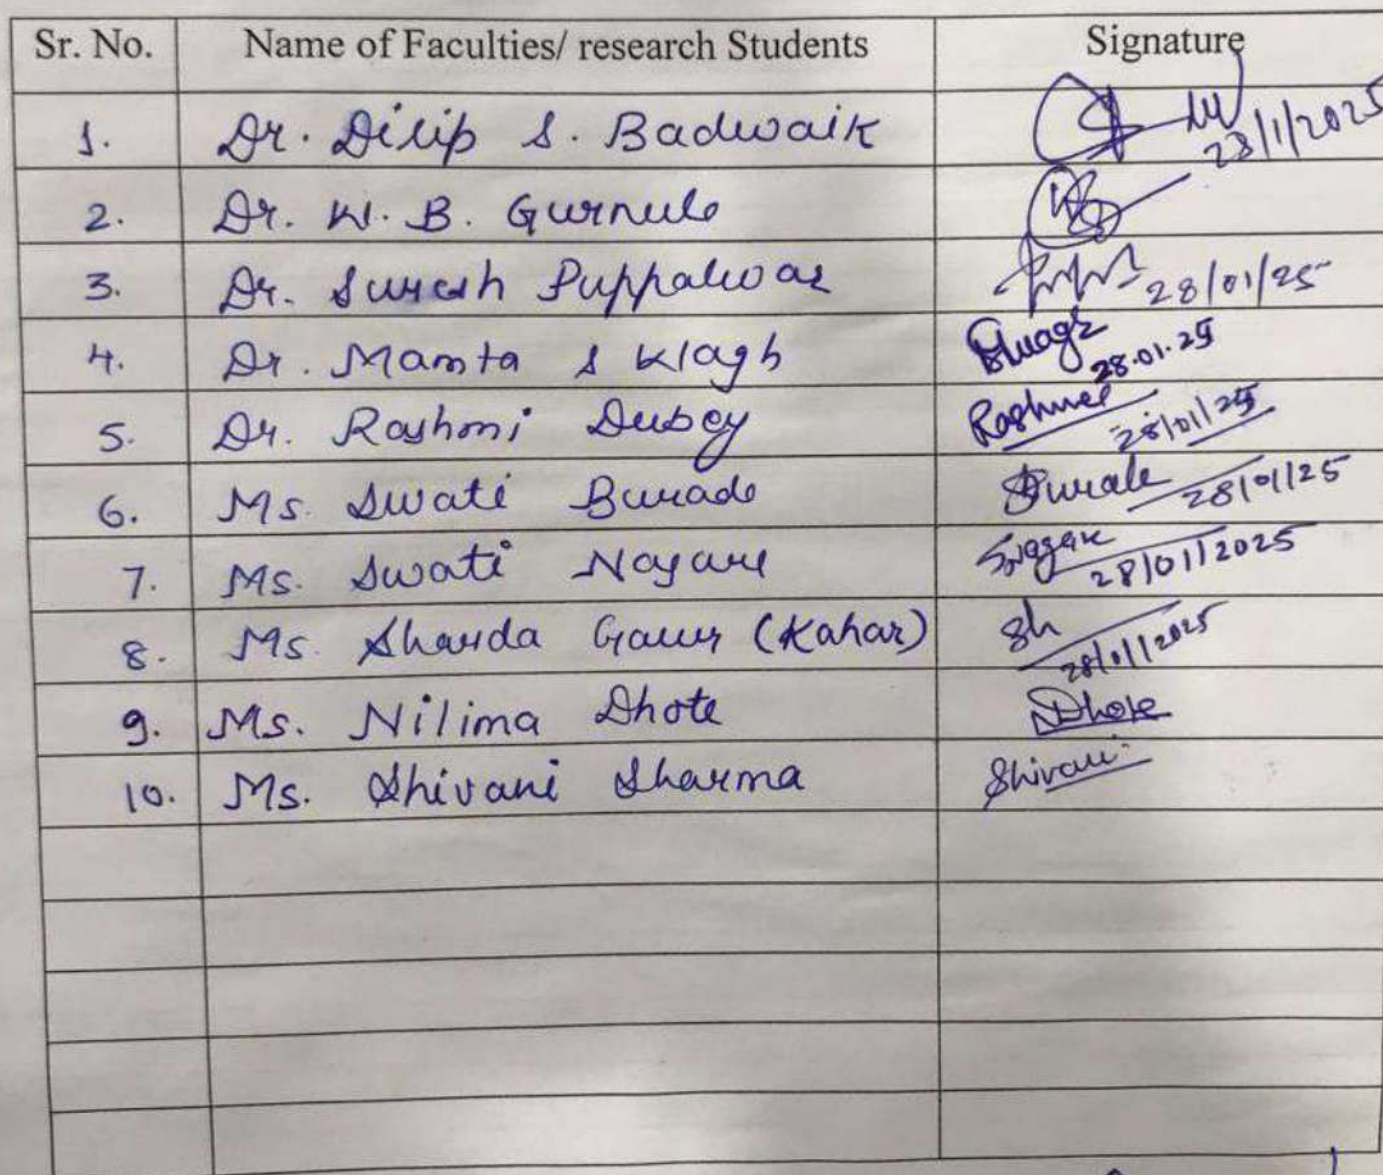 Sr. No. Name of Faculties/ research Students Signature
1. Dr. Dilip S. Badwaik 28/1/2025
2. Dr. W. B. Gurnule
3. Dr. Suresh Puppalwar 28/01/25
4. Dr. Mamta S Wagh 28.01.25
5. Dr. Rashmi Dubey Rashmi 28/01/25
6. Ms. Swati Burade 28/01/25
7. Ms. Swati Nagare 28/01/2025
8. Ms. Sharda Gaur (Kahar) Sh 28/01/2025
9. Ms. Nilima Dhote NDhote
10. Ms. Shivani Sharma Shivani